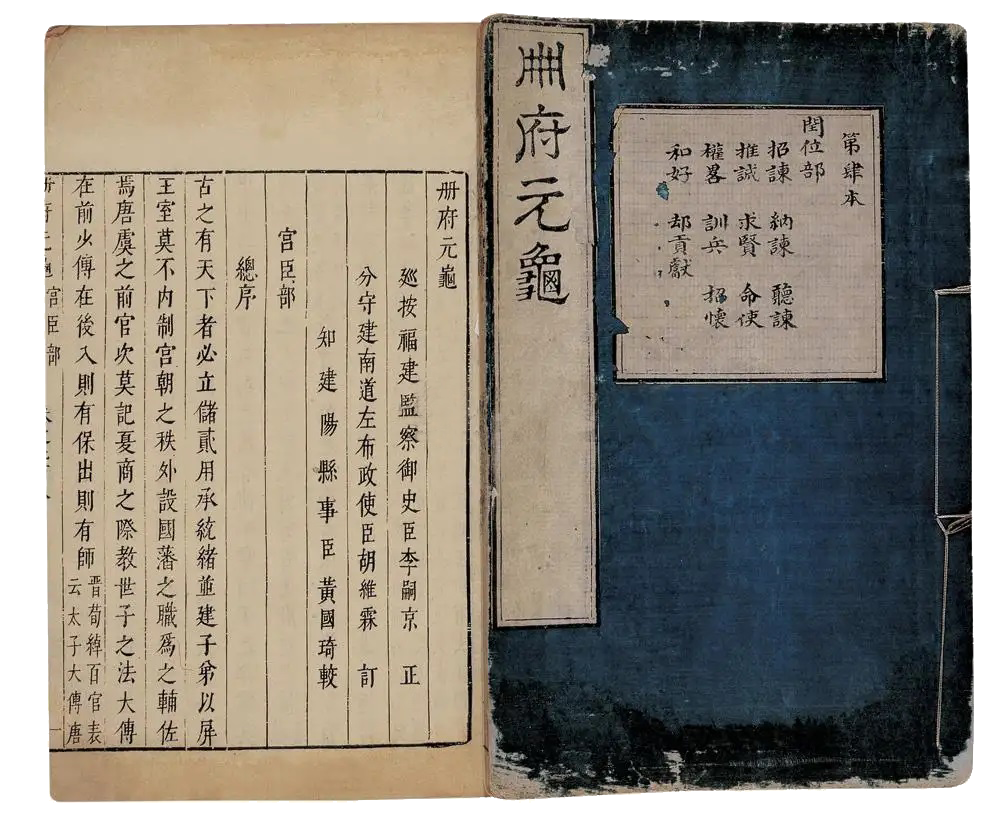 冊府元龜
第肆本
閏位部
招諫 納諫 聽諫
推誠 求賢 命使
權畧 訓兵 招懷
和好 却貢獻
册府元龜
廵按福建監察御史臣李嗣京 正
分守建南道左布政使臣胡維霖 訂
知建陽縣事臣黃國琦較
宮臣部
總序
古之有天下者必立儲貳用承統緒並建子弟以屏
王室莫不内制宮朝之秩外設國藩之職爲之輔佐
焉唐虞之前官次莫記夏商之際教世子之法大傅
在前少傅在後入則有保出則有師
晋荀綽百官表
云太子大傅唐
册府元龜 宮臣部